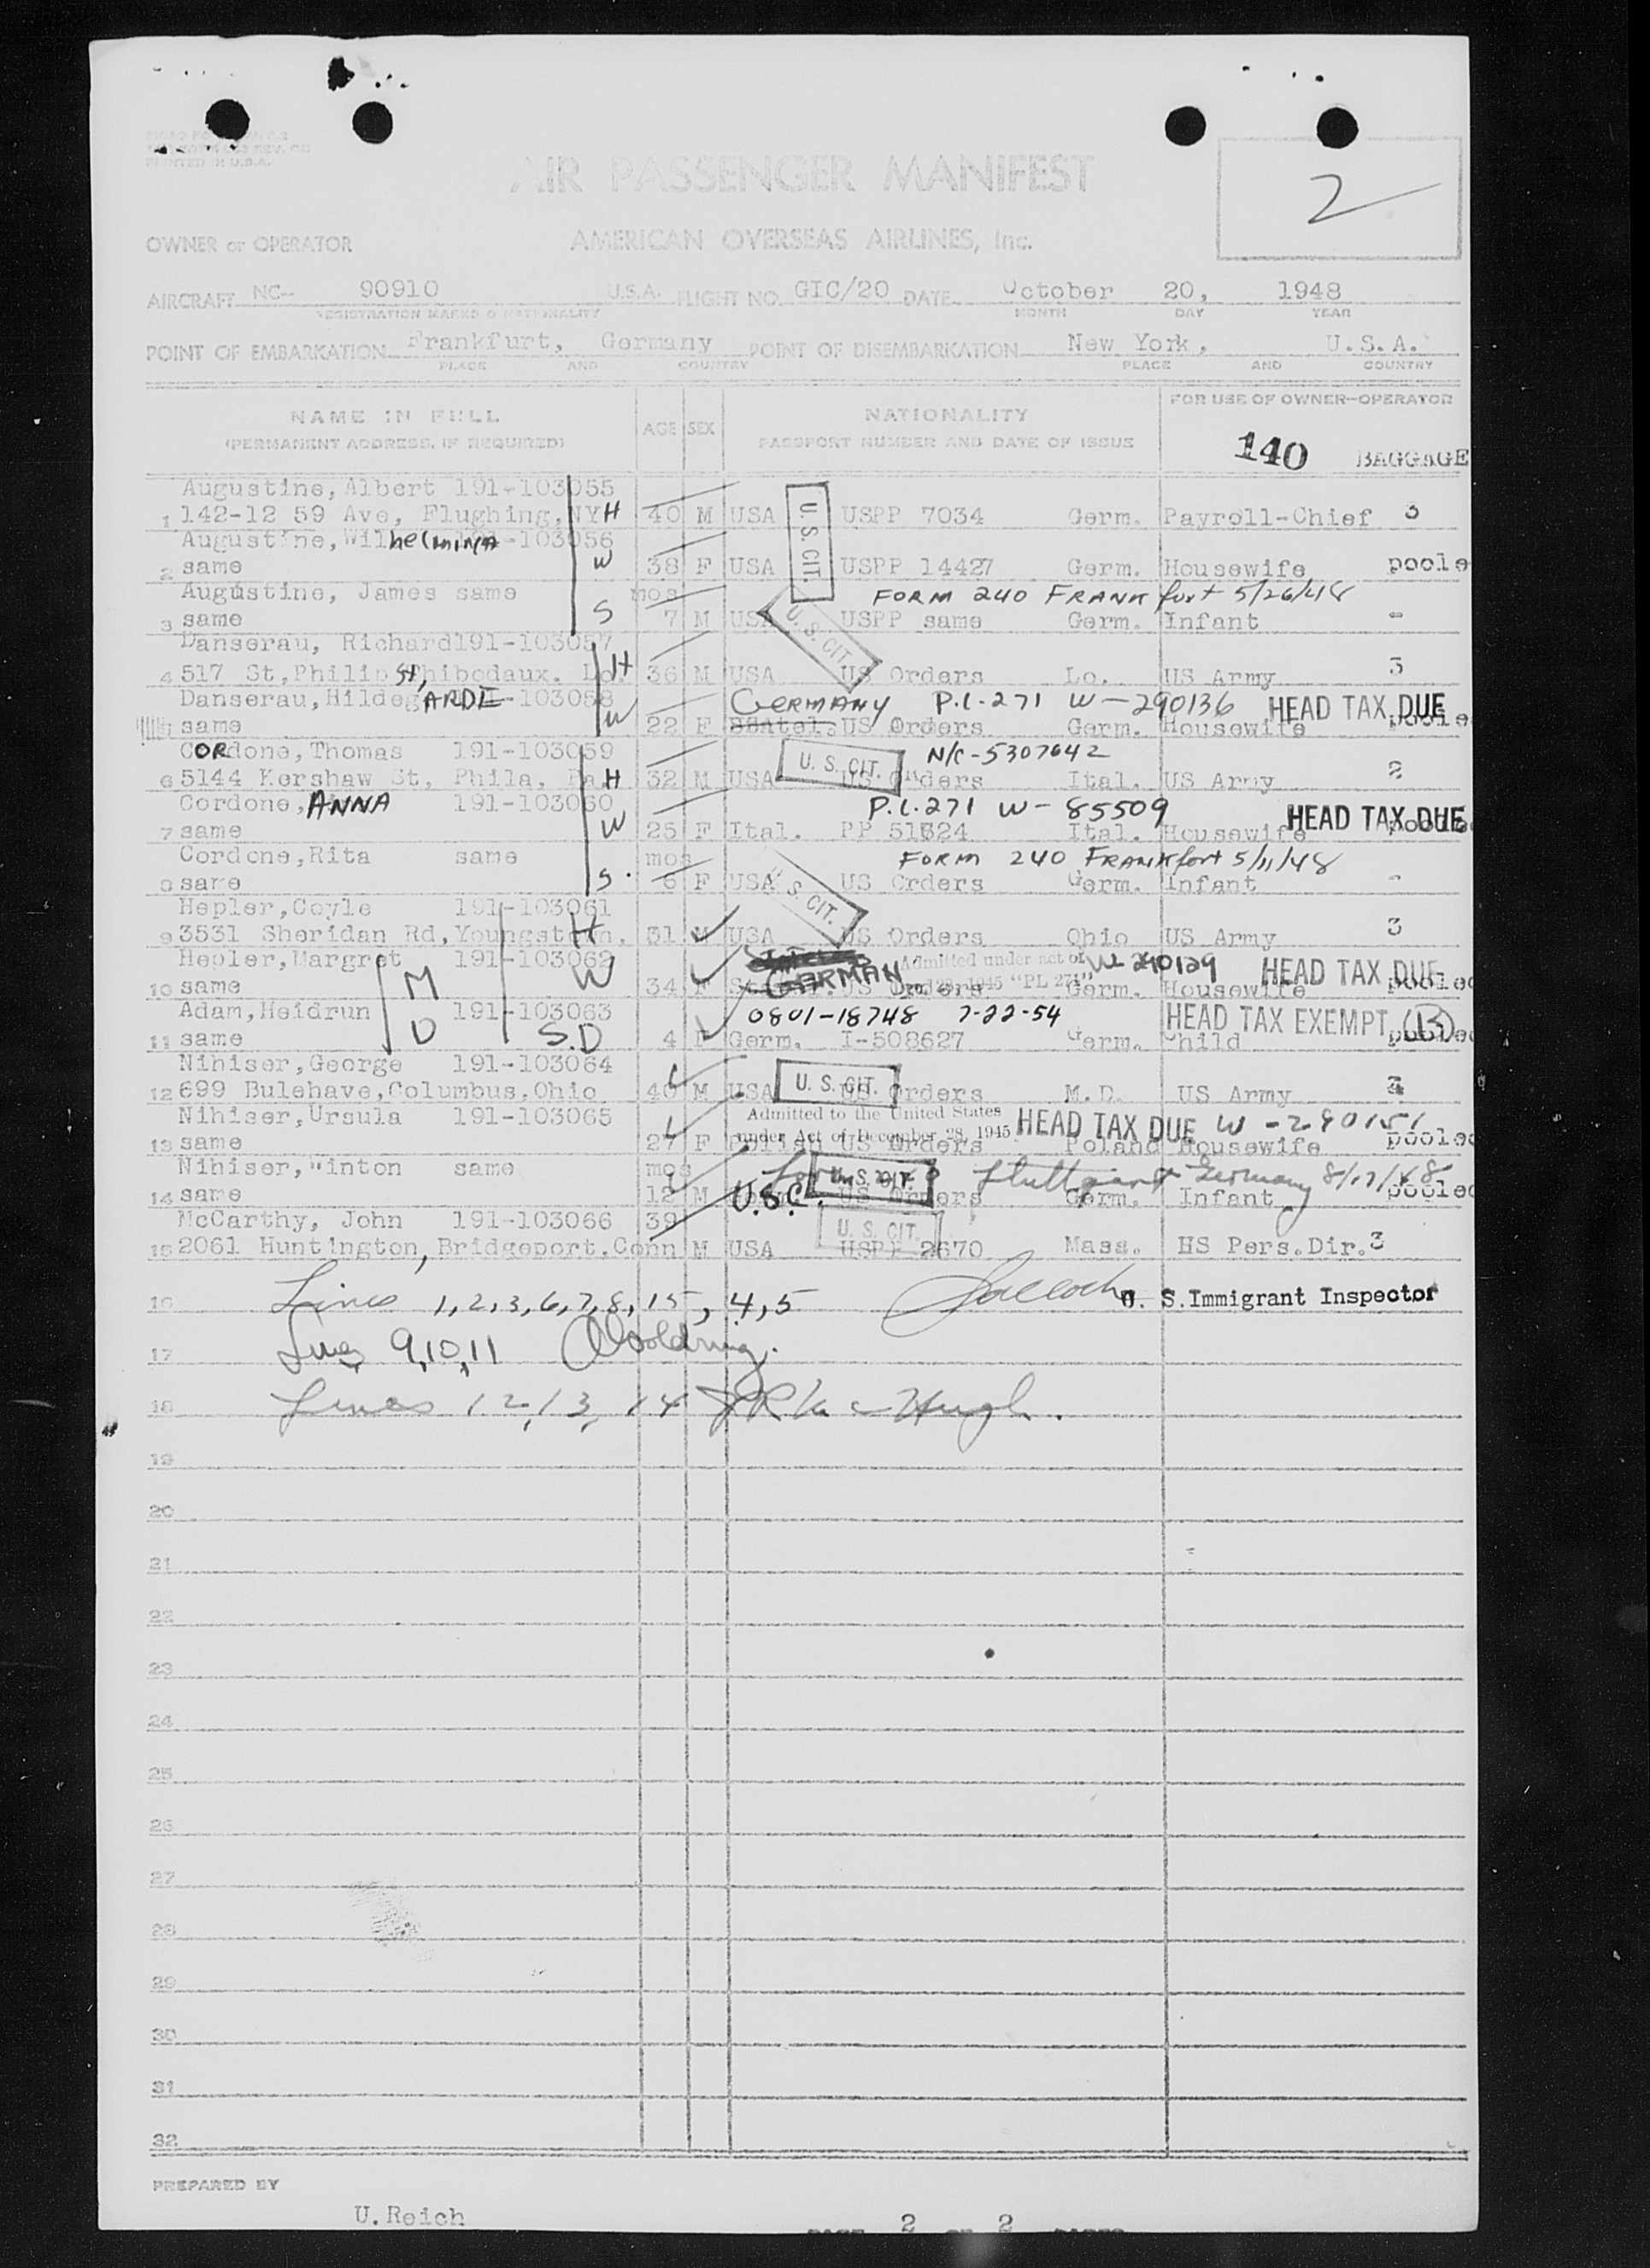 PRINTED IN U.S.A.
AIR PASSENGER MANIFEST
2
OWNER or OPERATOR AMERICAN OVERSEAS AIRLINES, Inc.
AIRCRAFT NC- 90910 U.S.A. FLIGHT NO. GIC/20 DATE October 20, 1948
REGISTRATION MARKS & NATIONALITY MONTH DAY YEAR
POINT OF EMBARKATION Frankfurt, Germany POINT OF DISEMBARKATION New York, U.S.A.
PLACE AND COUNTRY PLACE AND COUNTRY
NAME IN FULL AGE SEX NATIONALITY FOR USE OF OWNER-OPERATOR
(PERMANENT ADDRESS, IF REQUIRED) PASSPORT NUMBER AND DATE OF ISSUE 140 BAGGAGE
Augustine, Albert 191-103055
1 142-12 59 Ave, Flughing, NY H 40 M USA U.S. CIT. USPP 7034 Germ. Payroll-Chief 3
Augustine, Wilhelmina -103056
2 same W 38 F USA USPP 14427 Germ. Housewife poole
Augustine, James same mos FORM 240 FRANKfurt 5/26/48
3 same S 7 M USA U.S. CIT. USPP same Germ. Infant -
Danserau, Richard191-103057
4 517 St,Philip St, Thibodaux. Lo. H 36 M USA US Orders Lo. US Army 3
Danserau, HildegARDE-103058 GERMANY P.L.271 W-290136 HEAD TAX DUE
same W 22 F US Orders Germ. Housewife poole
CORdone, Thomas 191-103059 U.S. CIT. N/C-5307642
6 5144 Kershaw St, Phila, Pa. H 32 M USA US Orders Ital. US Army 2
Cordone, ANNA 191-103060 P.L.271 W-85509 HEAD TAX DUE
7 same W 25 F Ital. PP 51624 Ital. Housewife pooled
Cordone,Rita same mos FORM 240 FRANKfort 5/11/48
8 same S. 6 F USA U.S. CIT. US Orders Germ. Infant -
Hepler,Coyle 191-103061
9 3531 Sheridan Rd,Youngstown, H 31 M USA US Orders Ohio US Army 3
Hepler,Margret 191-103062 Admitted under act of W 290129 HEAD TAX DUE
10 same M W 34 F GERMAN US Orders 1945 "PL 271" Germ. Housewife pooled
Adam,Heidrun 191-103063 0801-18748 7-22-54 HEAD TAX EXEMPT (B)
11 same D S.D 4 F Germ. I-508627 Germ. Child pooled
Nihiser,George 191-103064
12 699 Bulehave,Columbus,Ohio 40 M USA U.S. CIT. US Orders M.D. US Army 4
Nihiser,Ursula 191-103065 Admitted to the United States HEAD TAX DUE W-290151
13 same 27 F under Act of December 28, 1945 US Orders Poland Housewife pooled
Nihiser, Winton same mos U.S. CIT. Stuttgart Germany 8/17/48
14 same 12 M U.S.C. US Orders Germ. Infant pooled
McCarthy, John 191-103066 39 U.S. CIT.
15 2061 Huntington, Bridgeport.Conn M USA USPP 2670 Mass. HS Pers.Dir. 3
16 Lines 1,2,3,6,7,8,15, 4,5 U. S. Immigrant Inspector
17 Lines 9,10,11 Wooldring.
18 Lines 12,13,14 JR McHugh.
19
20
21
22
23
24
25
26
27
28
29
30
31
32
PREPARED BY
U.Reich
PAGE 2 OF 2 PAGES